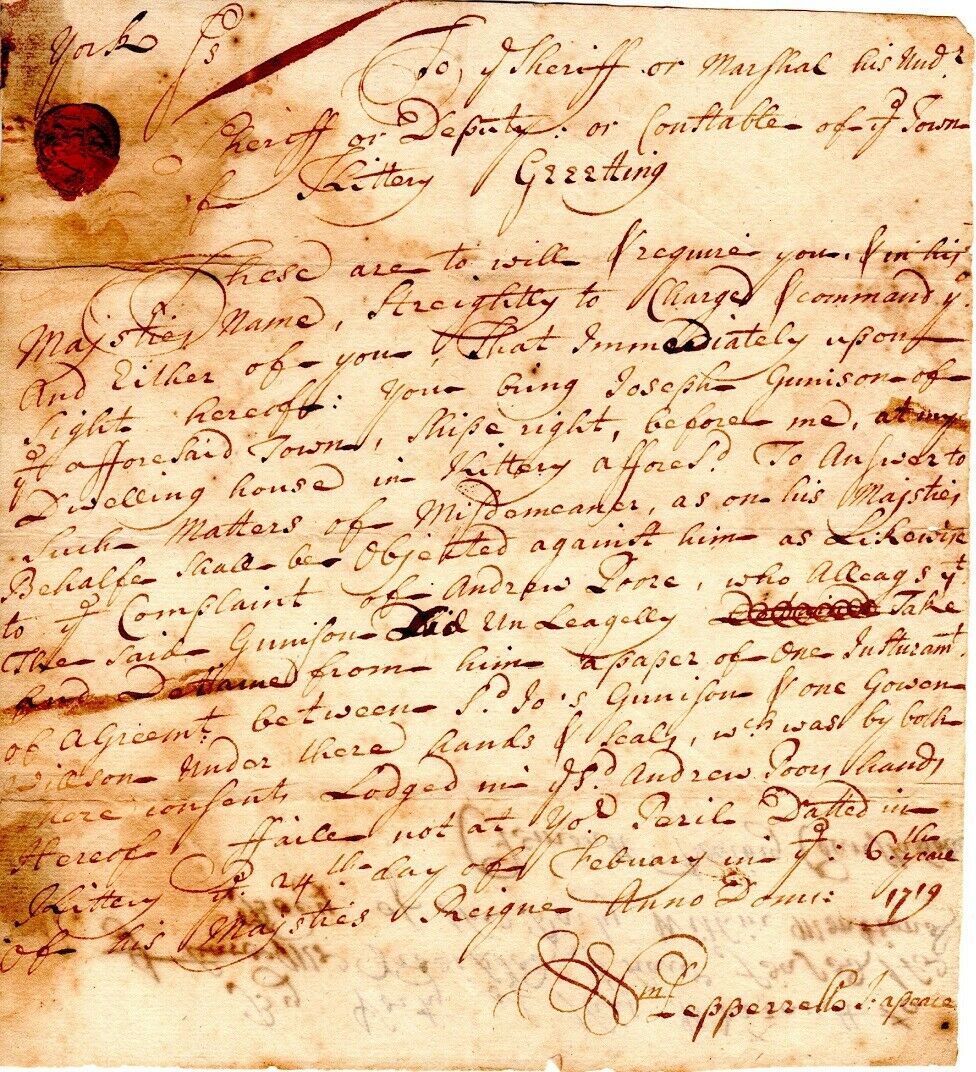 York Ss
To ye Sheriff or Marshal his Undr
Sheriff or Deputy: or Constable of ye Town
of Kittery Greetting
These are to will & require you, & in his
Majsties Name, streightly to Charge & command ye
And Either of you That Immediately upon
sight hereof: You bring Joseph Gunison of
ye afforesaid Town, Shipe right, before me, at my
Dwelling house in Kittery affores.d To Answer to
such Matters of Misdemeaner, as on his Majsties
Behalfe shall be Objected against him as Likewise
to ye Complaint of Andrew Poore, who Alleags yt
The said Gunison Did UnLeagelly Take
And Detained from him a paper of One Insturamt
of Agreemt: between Sd Jo:s Gunison & one Gowen
Willson Under there hands & seals, wch was by both
there consents Lodged in ye Sd Andrew Poors hands
Hereof ffaile not at Yor Peril Datted in
Kittery ye: 24th day of Febuary in ye: 6th yeare
of his Majsties Reigne Anno Domi: 1719
Wm Pepperrell J: apeace